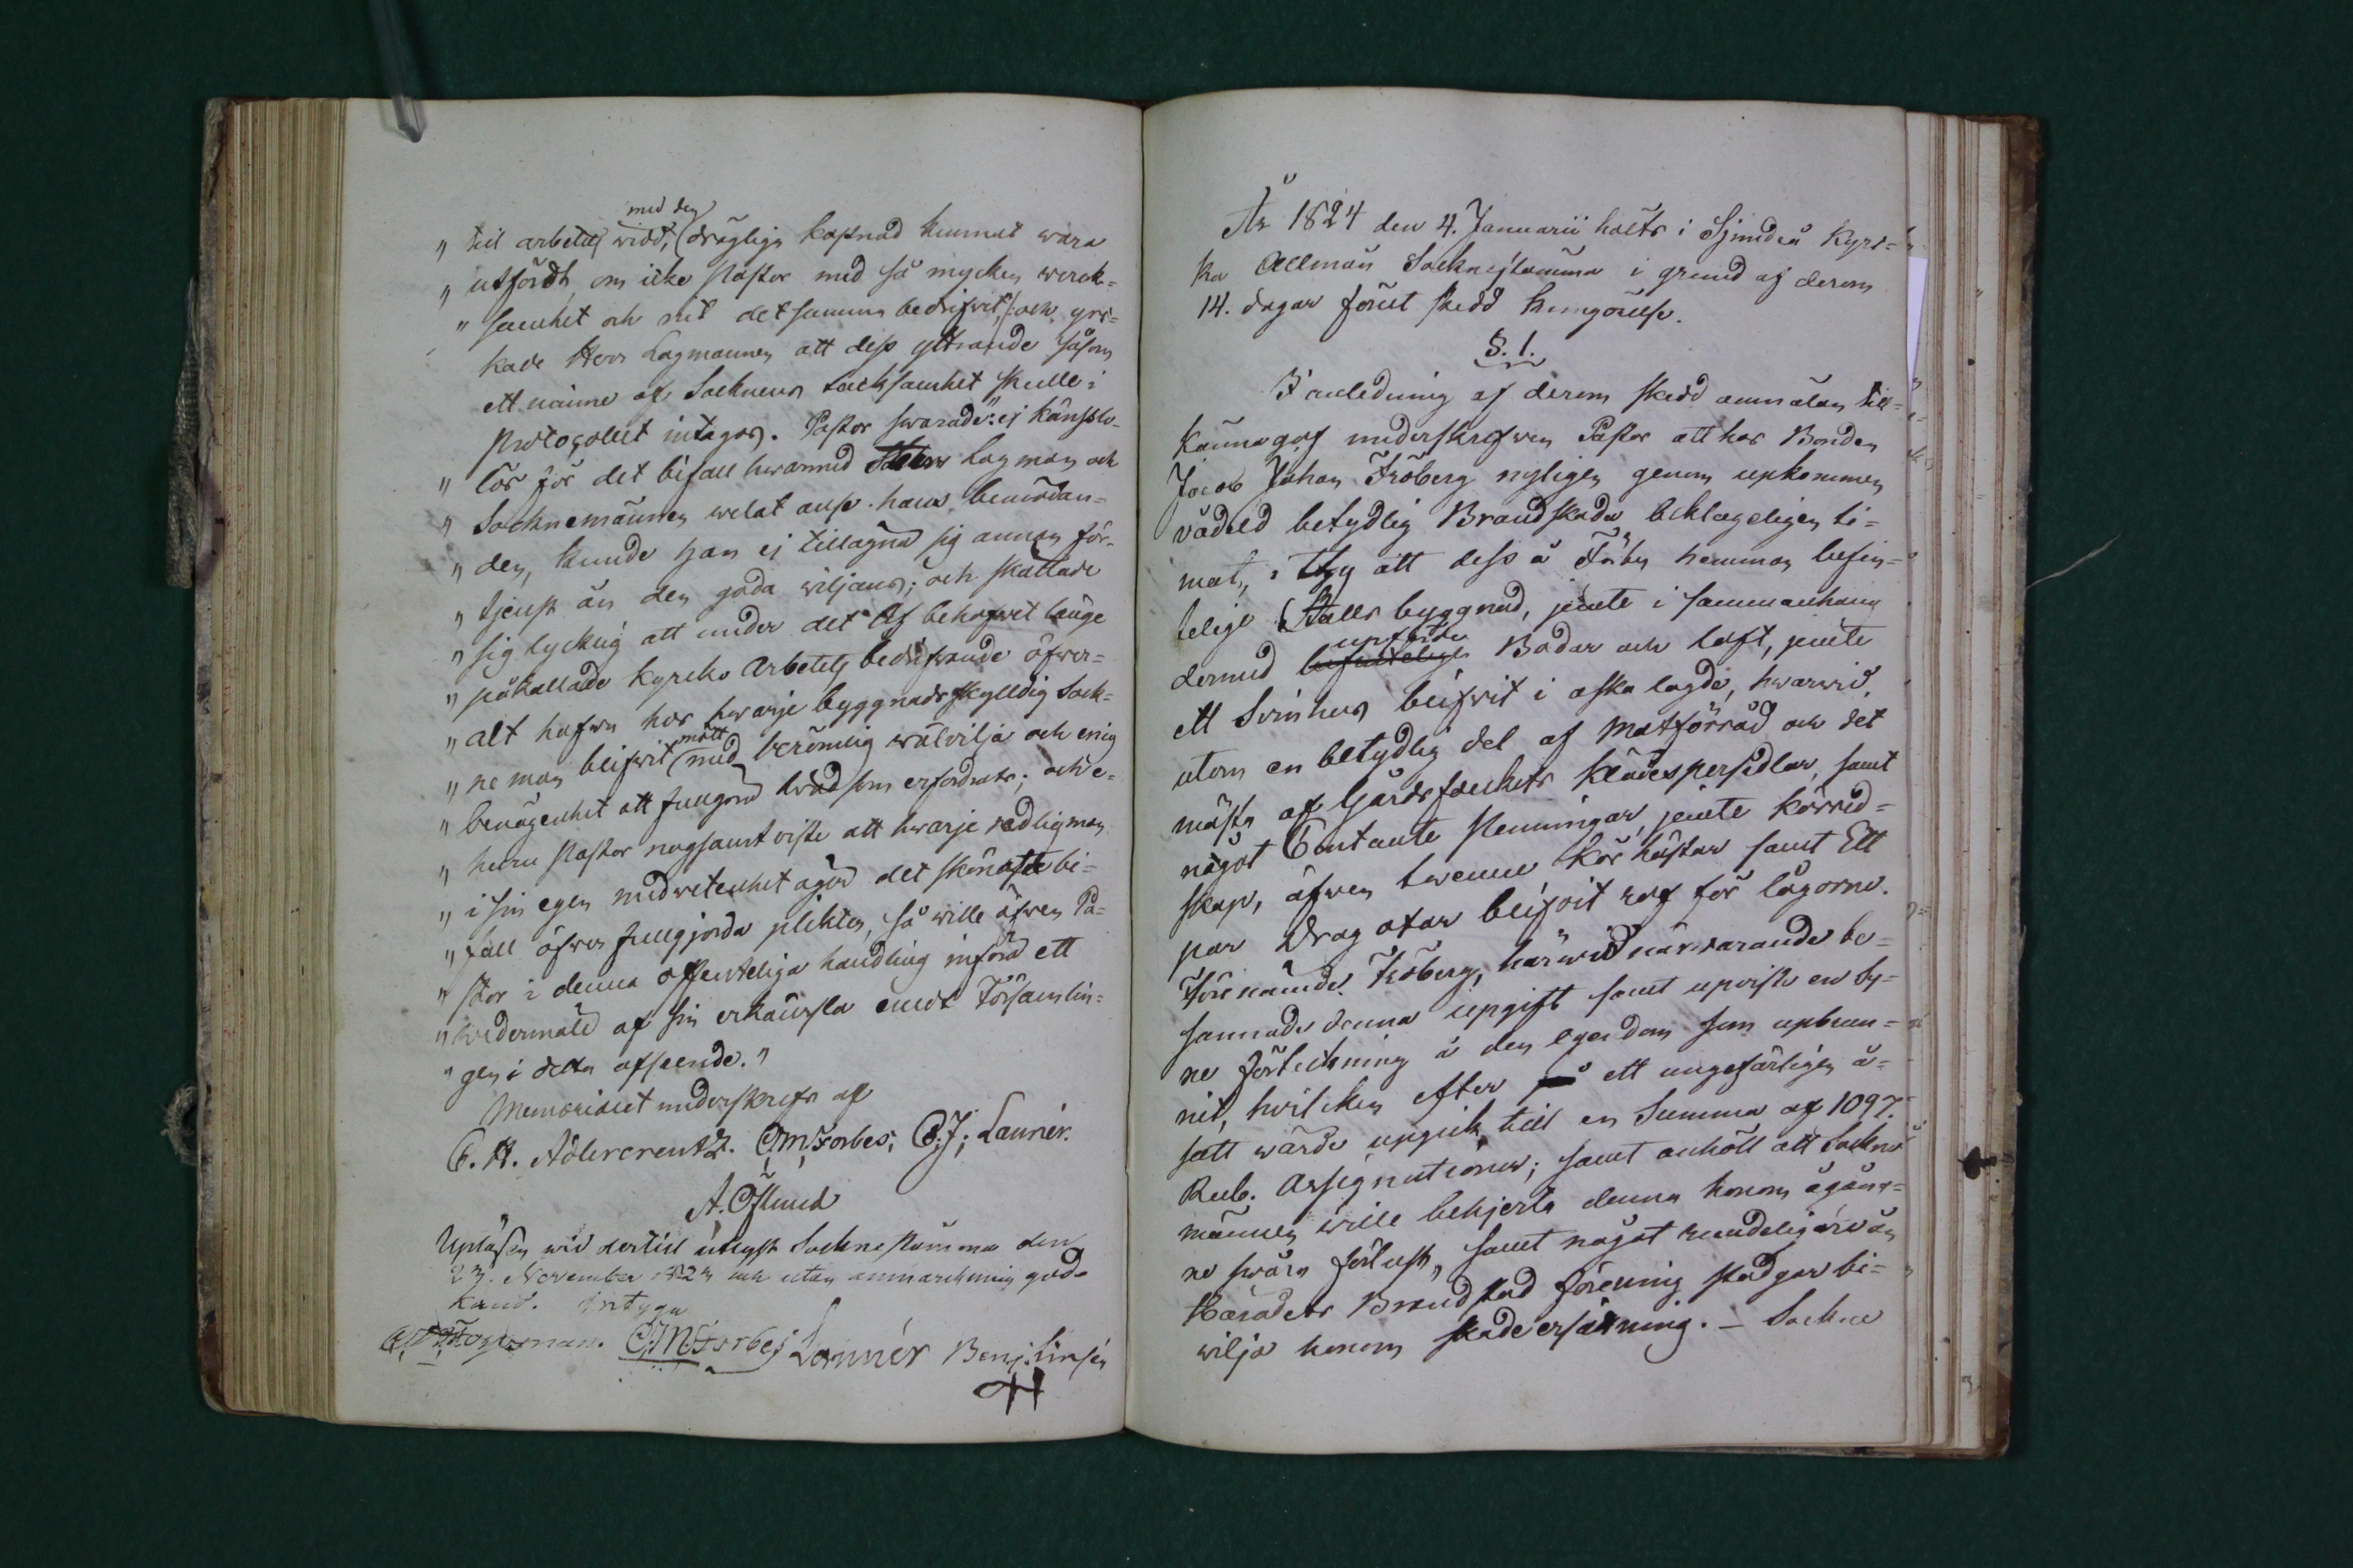 med den
" till arbetets widd, drägliga kostnad kunnat wara
" utfördt, om icke Pastor med så mycken werck=
" samhet och nit detsamma bedrifwit /: och yrk=
kade Herr Lagmannen att dess yttrande såsom
ett nämne af Socknens tacksamhet skulle i
Protocollet intagas. Pastor swarade: " ej känslo=
" lös för det bifall hwarmed Herr Lagman och
" Socknemännen welat anse hans bemödan=
" den, kunde han ej tillägna sig annan för=
" tjenst än den goda wiljans; och skattade
" sig lycklig att under det af behofwet länge
" påkallade Kyrko Arbetets bedrifwande öfwer=
" alt hafwa hos hwarje byggnadsskylldig Sock=
mött
" ne man blifwit med berömlig wälvilja och enig
" benägenhet att fullgöra hwad som erfordrats; och e=
" huru Pastor nogsamt wiste att hwarje redlig man
" i sin egen medwetenhet äger det skönaste bi=
" fall öfwer fullgjorda plikter, så wille äfwen Pa=
" stor i denna offenteliga handling införa ett
" wedermäle af sin erkänsla emot Församlin=
" gen i detta afseende. "
Memorialet underskrefs af
C. H. Adlercreutz. C. M. Forbes; C. J. Lannér.
A. Öhlund
Upläsin wid dertill utlyst Sockne stämma den
23. November 1823 och utan anmärckning god=
känd. Intyga
C. M. Forbes Lannér Benj. Linsén
År 1824 den 4. Januarii hölts i Sjundeå Kyrc=
ka Allmän Sockne stämma i grund af derom
14. dagar förut skedd kungörelse.
§. 1.
I anledning af derom skedd anmälan till=
kännagaf underskrefwen Pastor att hos Bonden
Jacob Johan Fröberg nyligen genom upkommen
vådeld betydlig Brandskada beklageligen ti=
mat, i thy att dess å Fåby hemman befin=
telige Stalls byggnad, jemte i sammanhang
upförde
dermed befintelige Bodar och loft, jemte
ett Svinhus blifwit i aska lagde, hwarwid,
utom en betydlig del af Matförråd och det
mästa af Gårdsfolkets klädespersedlar, samt
något Contante Penningar, jemte körred=
skap, äfwen twenne Kör hästar samt Ett
par Drag oxar blifwit rof för lågorne.
Förenämnde Fröberg, härwid närwarande be=
sannade denna upgift samt upwiste en by=
ne förteckning å den egendom som upbrun=
nit, hwilcken efter på ett ungefärligen å=
satt wärde upgick till en Summa af 1097.
Rub. Assignationer; samt anhöll att Sockne
männen wille behjerta denna honom öfwergång=
ne swåra förlust, samt något rundeligare än
Häradets Brandstod förening stadgar be=
wilja honom skade ersättning. – Sockne